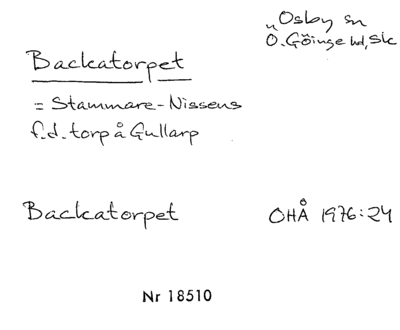 Osby sn
Ö. Göinge hd, Sk
Backatorpet
= Stammare-Nissens
f.d. torp å Gullarp
Backatorpet OHÅ 1976:24
Nr 18510